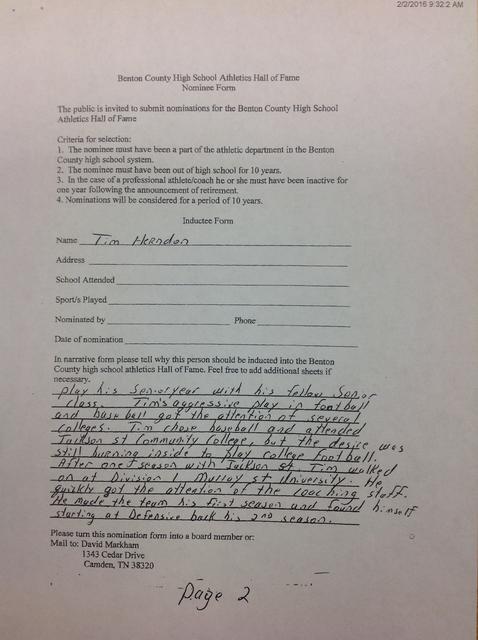 2/2/2016 9:32:2 AM
Benton County High School Athletics Hall of Fame
Nominee Form
The public is invited to submit nominations for the Benton County High School
Athletics Hall of Fame
Criteria for selection:
1. The nominee must have been a part of the athletic department in the Benton
County high school system.
2. The nominee must have been out of high school for 10 years.
3. In the case of a professional athlete/coach he or she must have been inactive for
one year following the announcement of retirement.
4. Nominations will be considered for a period of 10 years.
Inductee Form
Name Tim Herndon
Address
School Attended
Sport/s Played
Nominated by Phone
Date of nomination
In narrative form please tell why this person should be inducted into the Benton
County high school athletics Hall of Fame. Feel free to add additional sheets if
necessary.
play his Senior year with his fellow Senior
Class. Tim's aggressive play in football
and baseball got the attention of several
Colleges. Tim chose baseball and attended
Jackson St Community College, but the desire was
still burning inside to play college football.
After one season with Jackson St. Tim walked
on at Division 1 Murray St University. He
quickly got the attention of the coaching staff.
He made the team his first season and found himself
starting at Defensive back his 2nd season.
Please turn this nomination form into a board member or:
Mail to: David Markham
1343 Cedar Drive
Camden, TN 38320
Page 2